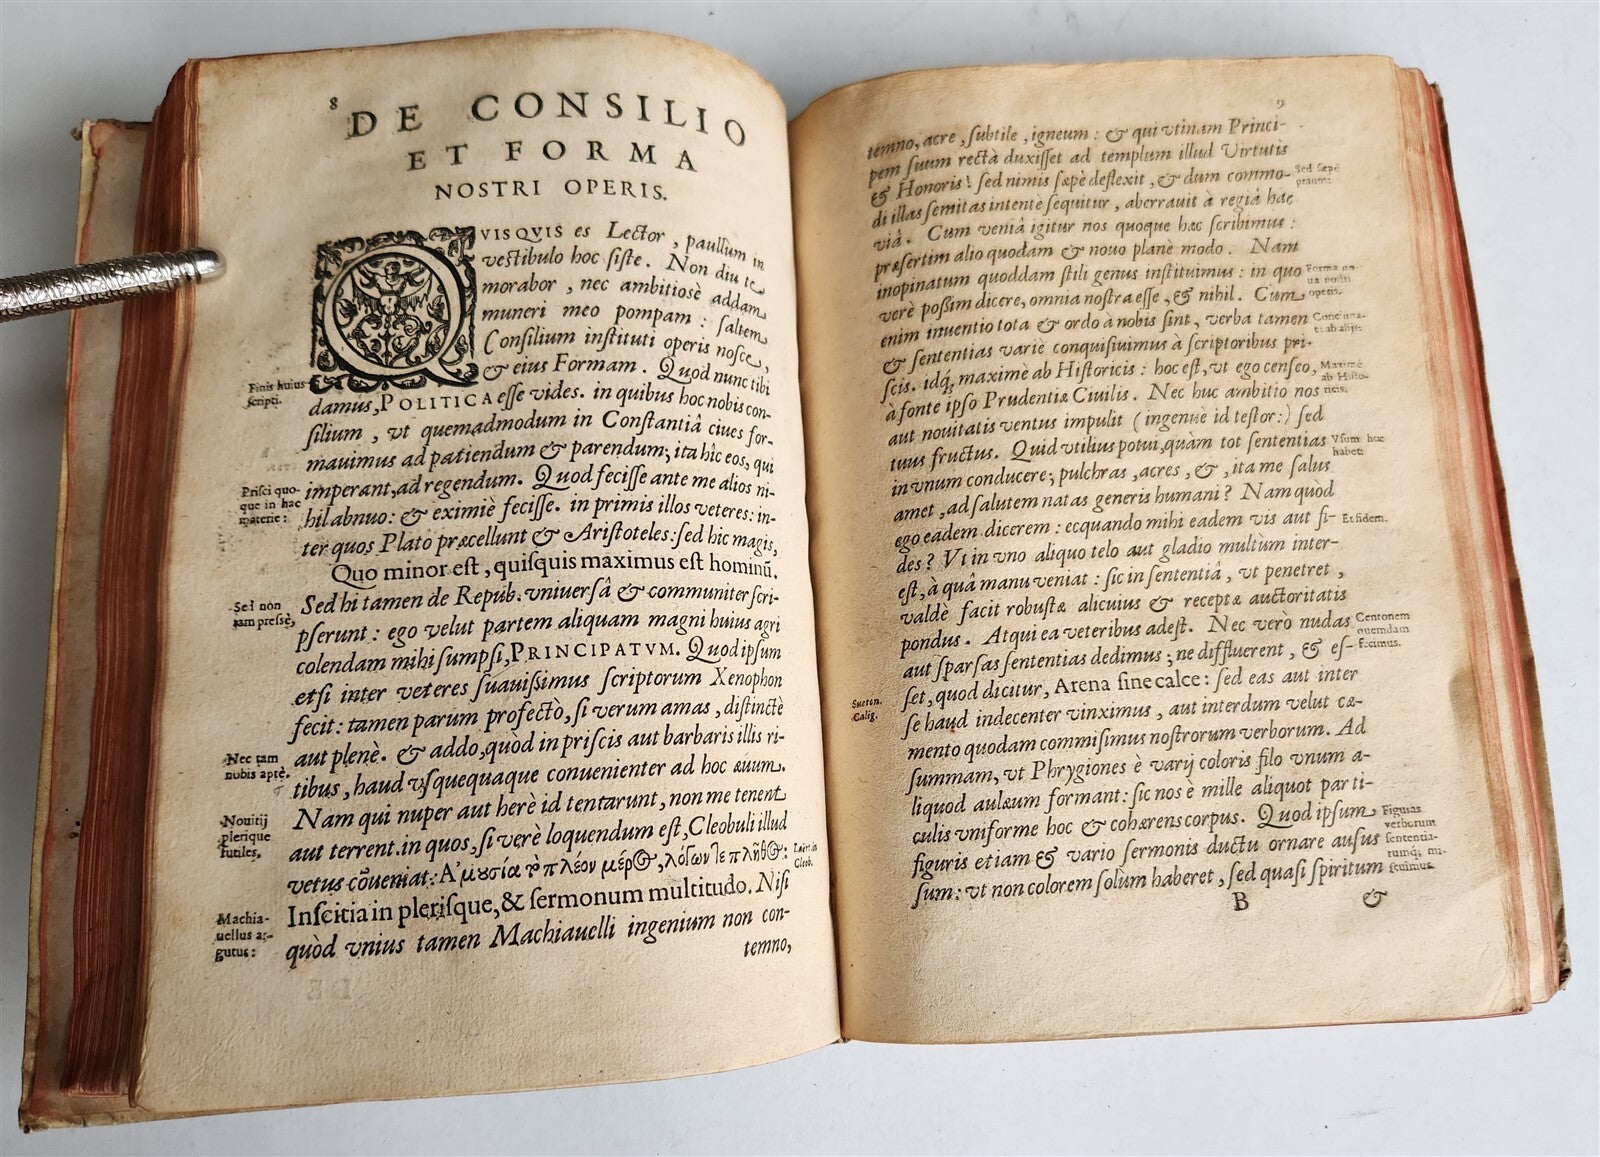 8
DE CONSILIO
ET FORMA
NOSTRI OPERIS.
QVISQVIS es Lector, paullùm in
vestibulo hoc siste. Non diu te
morabor, nec ambitiosè addam
muneri meo pompam: saltem
Consilium instituti operis nosce,
& eius Formam. Quod nunc tibi
Finis huius scripti.
damus, POLITICA esse vides. in quibus hoc nobis con-
silium, vt quemadmodum in Constantiâ ciues for-
mauimus ad patiendum & parendum; ita hîc eos, qui
imperant, ad regendum. Quod fecisse ante me alios ni-
Prisci quo-
que in hac
materie:
hil abnuo: & eximiè fecisse. in primis illos veteres: in-
ter quos Plato præcellunt & Aristoteles: sed hic magis,
Quo minor est, quisquis maximus est hominũ.
Sed hi tamen de Repub. vniuersâ & communiter scri-
Sed non
tam pressè,
pserunt: ego velut partem aliquam magni huius agri
colendam mihi sumpsi, PRINCIPATVM. Quod ipsum
etsi inter veteres suauissimus scriptorum Xenophon
fecit: tamen parum profecto, si verum amas, distinctè
aut plenè. & addo, quòd in priscis aut barbaris illis ri-
Nec tam
nobis aptè.
tibus, haud vsquequaque conuenienter ad hoc æuum.
Nam qui nuper aut herè id tentarunt, non me tenent
Nouitij
plerique
futiles,
aut terrent. in quos, si verè loquendum est, Cleobuli illud
vetus cõueniat: Ἀμουσία τὸ πλέον μέρος, λόγων τε πλῆθος.
Laërt. in
Cleob.
Inscitia in plerisque, & sermonum multitudo. Nisi
Machia-
uellus ar-
gutus:
quòd vnius tamen Machiauelli ingenium non con-
temno,
9
temno, acre, subtile, igneum: & qui vtinam Princi-
pem suum rectà duxisset ad templum illud Virtutis
& Honoris! sed nimis sæpè deflexit, & dum commo-
Sed sæpè
prauus:
di illas semitas intentè sequitur, aberrauit à regiâ hac
viâ. Cum veniâ igitur nos quoque hac scribimus:
præsertim alio quodam & nouo planè modo. Nam
inopinatum quoddam stili genus instituimus: in quo
Forma no-
ua nostri
operis.
verè possim dicere, omnia nostra esse, & nihil. Cum
enim inuentio tota & ordo à nobis sint, verba tamen
& sententias variè conquisiuimus à scriptoribus pri-
scis. idq́, maximè ab Historicis: hoc est, vt ego censeo,
Maximè
ab Histo-
ricis.
à fonte ipso Prudentiæ Ciuilis. Nec huc ambitio nos
aut nouitatis ventus impulit (ingenue id testor:) sed
tuus fructus. Quid vtilius potui, quàm tot sententias
Vsum hoc
habet:
in vnum conducere; pulchras, acres, &, ita me salus
amet, ad salutem natas generis humani? Nam quòd
ego eadem dicerem: ecquando mihi eadem vis aut fi-
Et fidem.
des? Vt in vno aliquo telo aut gladio multùm inter-
est, à quâ manu veniat: sic in sententiâ, vt penetret,
valdè facit robustæ alicuius & receptæ auctoritatis
pondus. Atqui ea veteribus adest. Nec verò nudas
Centonem
quemdam
fecimus.
aut sparsas sententias dedimus; ne diffluerent, & es-
set, quod dicitur, Arena sine calce: sed eas aut inter
Sueton.
Calig.
se haud indecenter vinximus, aut interdum velut cæ-
mento quodam commisimus nostrorum verborum. Ad
summam, vt Phrygiones è varij coloris filo vnum a-
liquod aulæum formant: sic nos è mille aliquot parti-
culis vniforme hoc & cohærens corpus. Quod ipsum
Figuras
verborum
sententia-
rumq; mi-
scuimus.
figuris etiam & vario sermonis ductu ornare ausus
sum: vt non colorem solum haberet, sed quasi spiritum
B
&